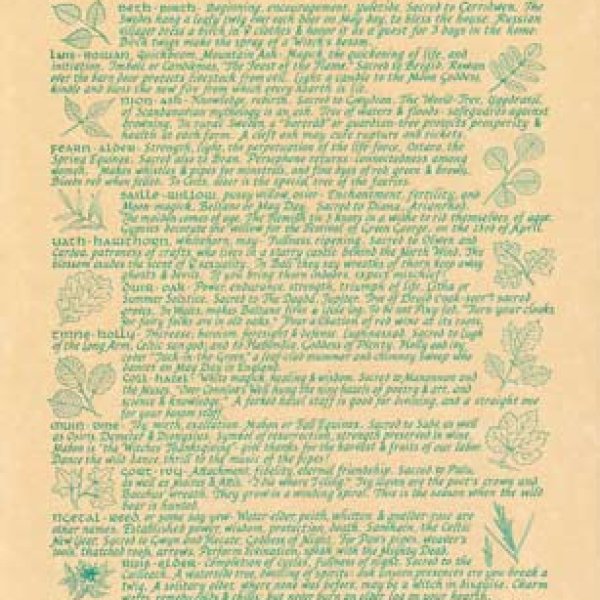 Beth - Birth - Beginning, encouragement, yuletide. Sacred to Cerridwen. The
hang a leafy twig over each door on May Day, to bless the house. Russian
villages dress a birch in clothes & honor it as a guest for 3 days in the home.
Birch twigs make the spray of a Witch's besom.
Luis - Rowan, Quickbeam, Mountain Ash - Magick, the quickening of life, and
initiation. Imbolc or Candlemas, "The Feast of the Flame." Sacred to Brigid. Rowan
over the barn door protects livestock from evil. Light a candle to the Moon Goddess
kindle and bless the new fire from which every hearth is lit.
Nion - Ash - Knowledge, rebirth. Sacred to Gwydion. The World-Tree,
of Scandinavian mythology is an ash. Tree of waters & floods - safeguards against
drowning. In rural Sweden, a or guardian-tree prompts prosperity &
health at each farm. A cleft ash may cure rupture and rickets.
Fearn - Alder - Strength, light, the perpetuation of the life force, Ostara, the
Spring Equinox. Sacred also to Bran. Persephone returns - connectedness among
women. Makes whistles & pipes for minstrels, and fine dyes of red green & brown.
Bleeds red when felled. To Celts, alder is the special tree of the faeries.
Saille - Willow, pussy willow, osier - Enchantment, fertility, and
Moon magick. Beltaine or May Day. Sacred to Diana,
The maidens comes of age. The Flemish tie 3 knots in a withe to rid themselves of ague.
Gypsies decorate the willow for the Festival of Green George, on the 23rd of April.
Uath - Hawthorn, whitehorn, may - Fullness ripening. Sacred to Olwen and
Cardea, patroness of crafts who lives in a starry castle behind the North Wind. The
blossom exudes the scent of sexuality. In Bali they say wreaths of thorns keep away
ghosts & devils - if you bring them indoors, expect mischief.
Duir - Oak - Power, endurance, strength, triumph of life. Litha or
Summer Solstice. Sacred to The Dagda, Jupiter. One of Druid sacred
groves. In Wales, makes Beltane fires & Yule log. "Turn your cloaks
for fairy folks are in old oaks." Pour a libation of red wine at its roots.
Tinne - Holly - Increase, heroism, foresight & defense. Lughnasadh. Sacred to Lugh
of the Long Arm, Celtic sun god; and to Habondia, Goddess of Plenty. Holly and ivy,
cover "Jack in the Green," a leaf-clad mummer and chimney sweep who
dances on May Day in England.
Coll - Hazel - White magick, healing & wisdom. Sacred to Manannon and
the Muses. Over Connlas' Well hang the nine hazels of poetry & art, and
science & knowledge. A forked hazel staff is good for divining, and a straight one
for your house staff.
Muin - Vine - Joy, mirth, exaltation. Mabon or Fall Equinox. Sacred to as well
as Osiris, Demeter & Dionysius. Symbol of resurrection, strength preserved in wine.
Mabon is "the Witches Thanksgiving" - give thanks for the harvest & fruits of our labor.
Dance the wild dance, thrill to the music of the pipes!
Gort - Ivy - Attachment, fidelity, eternal friendship. Sacred to
as well as "I die where I cling." Ivy leaves are the poet's crown and
Bacchus' wreath. They grow in a winding spiral. This is the season when the wild
boar is hunted.
Ngetal - Reed, or some say yew - Water-elder, peith, whitten & guelder rose are
other names. Established power, wisdom, protection, death. Samhain, the Celtic
New Year. Sacred to Gwyn and Hecate, Goddess of Night. For Pan's pipes, weaver's
tools, thatched roofs, arrows. Perform divination, speak with the Mighty Dead.
Ruis - Elder - Completion of cycles, fullness of night. Sacred to the
Cailleach. A waterside tree, dwelling of spirits - ask Unseen presences ere you break a
twig. A solitary elder, where none was before, may be a Witch in disguise. Charm
& chills, but never burn an elder log on your hearth.